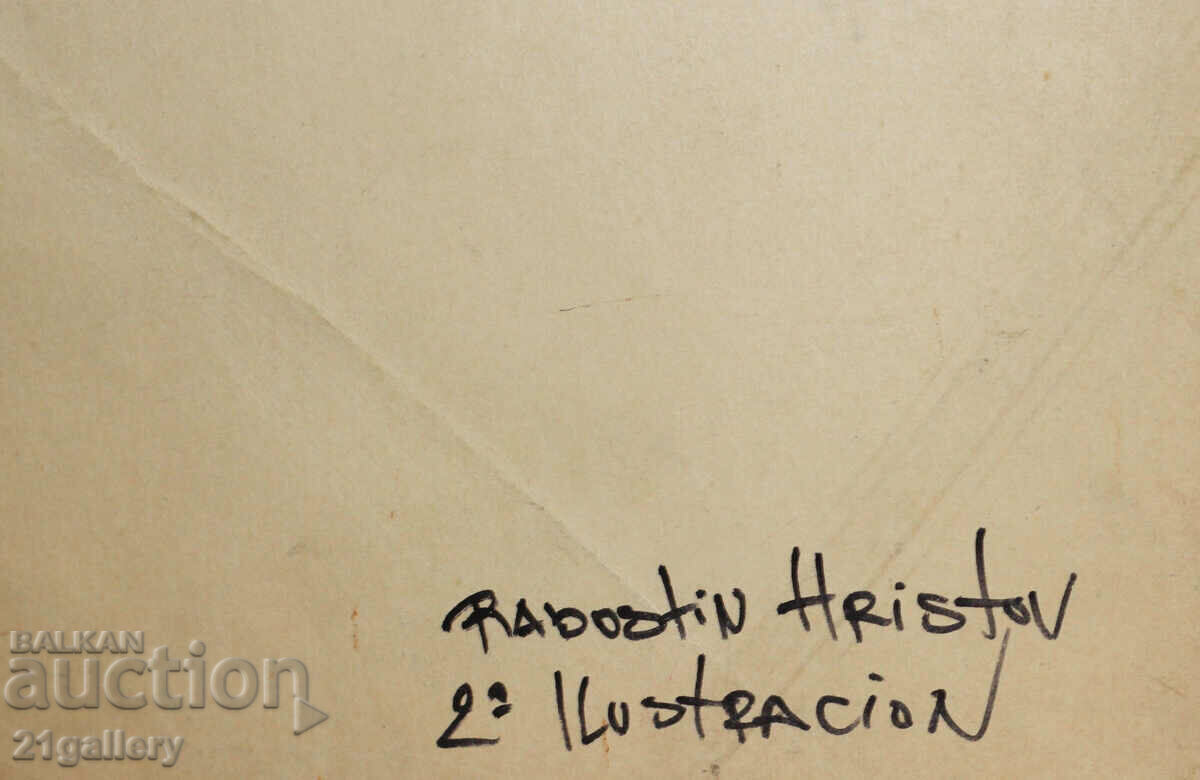 RADOSTIN HRISTOV
2ª ILUSTRACION
BALKAN
auction
21gallery